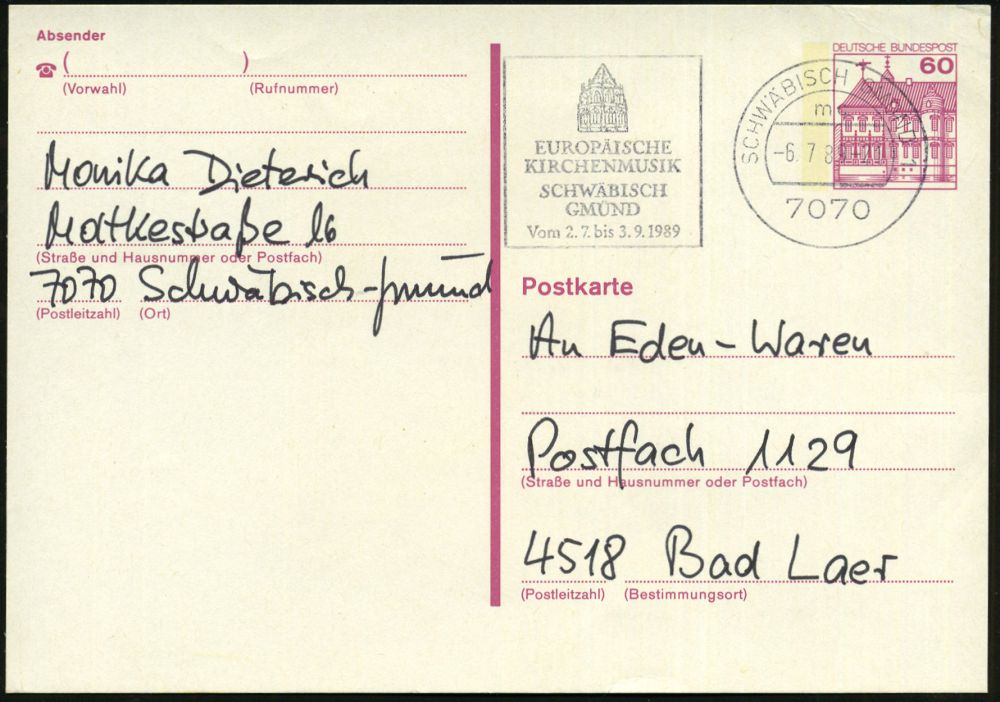 Absender
( )
(Vorwahl) (Rufnummer)
Monika Dieterich
16
(Straße und Hausnummer oder Postfach)
7070 Schwäbisch-gmünd
(Postleitzahl) (Ort)
EUROPÄISCHE
KIRCHENMUSIK
SCHWÄBISCH
GMÜND
Vom 2.7. bis 3.9.1989
SCHWÄBISCH GMÜND 1
-6.7.89
7070
DEUTSCHE BUNDESPOST
60
Postkarte
An Eden-Waren
Postfach 1129
(Straße und Hausnummer oder Postfach)
4518 Bad Laer
(Postleitzahl) (Bestimmungsort)